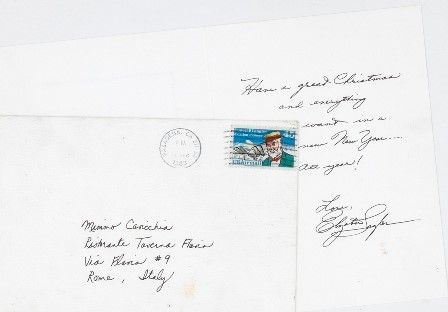 Have a great Christmas
and everything
want in a
new New Year...
ate year!
Love,
Mimmo Cavicchia
Ristorante Taverna Flavia
Via Flavia #9
Rome, Italy